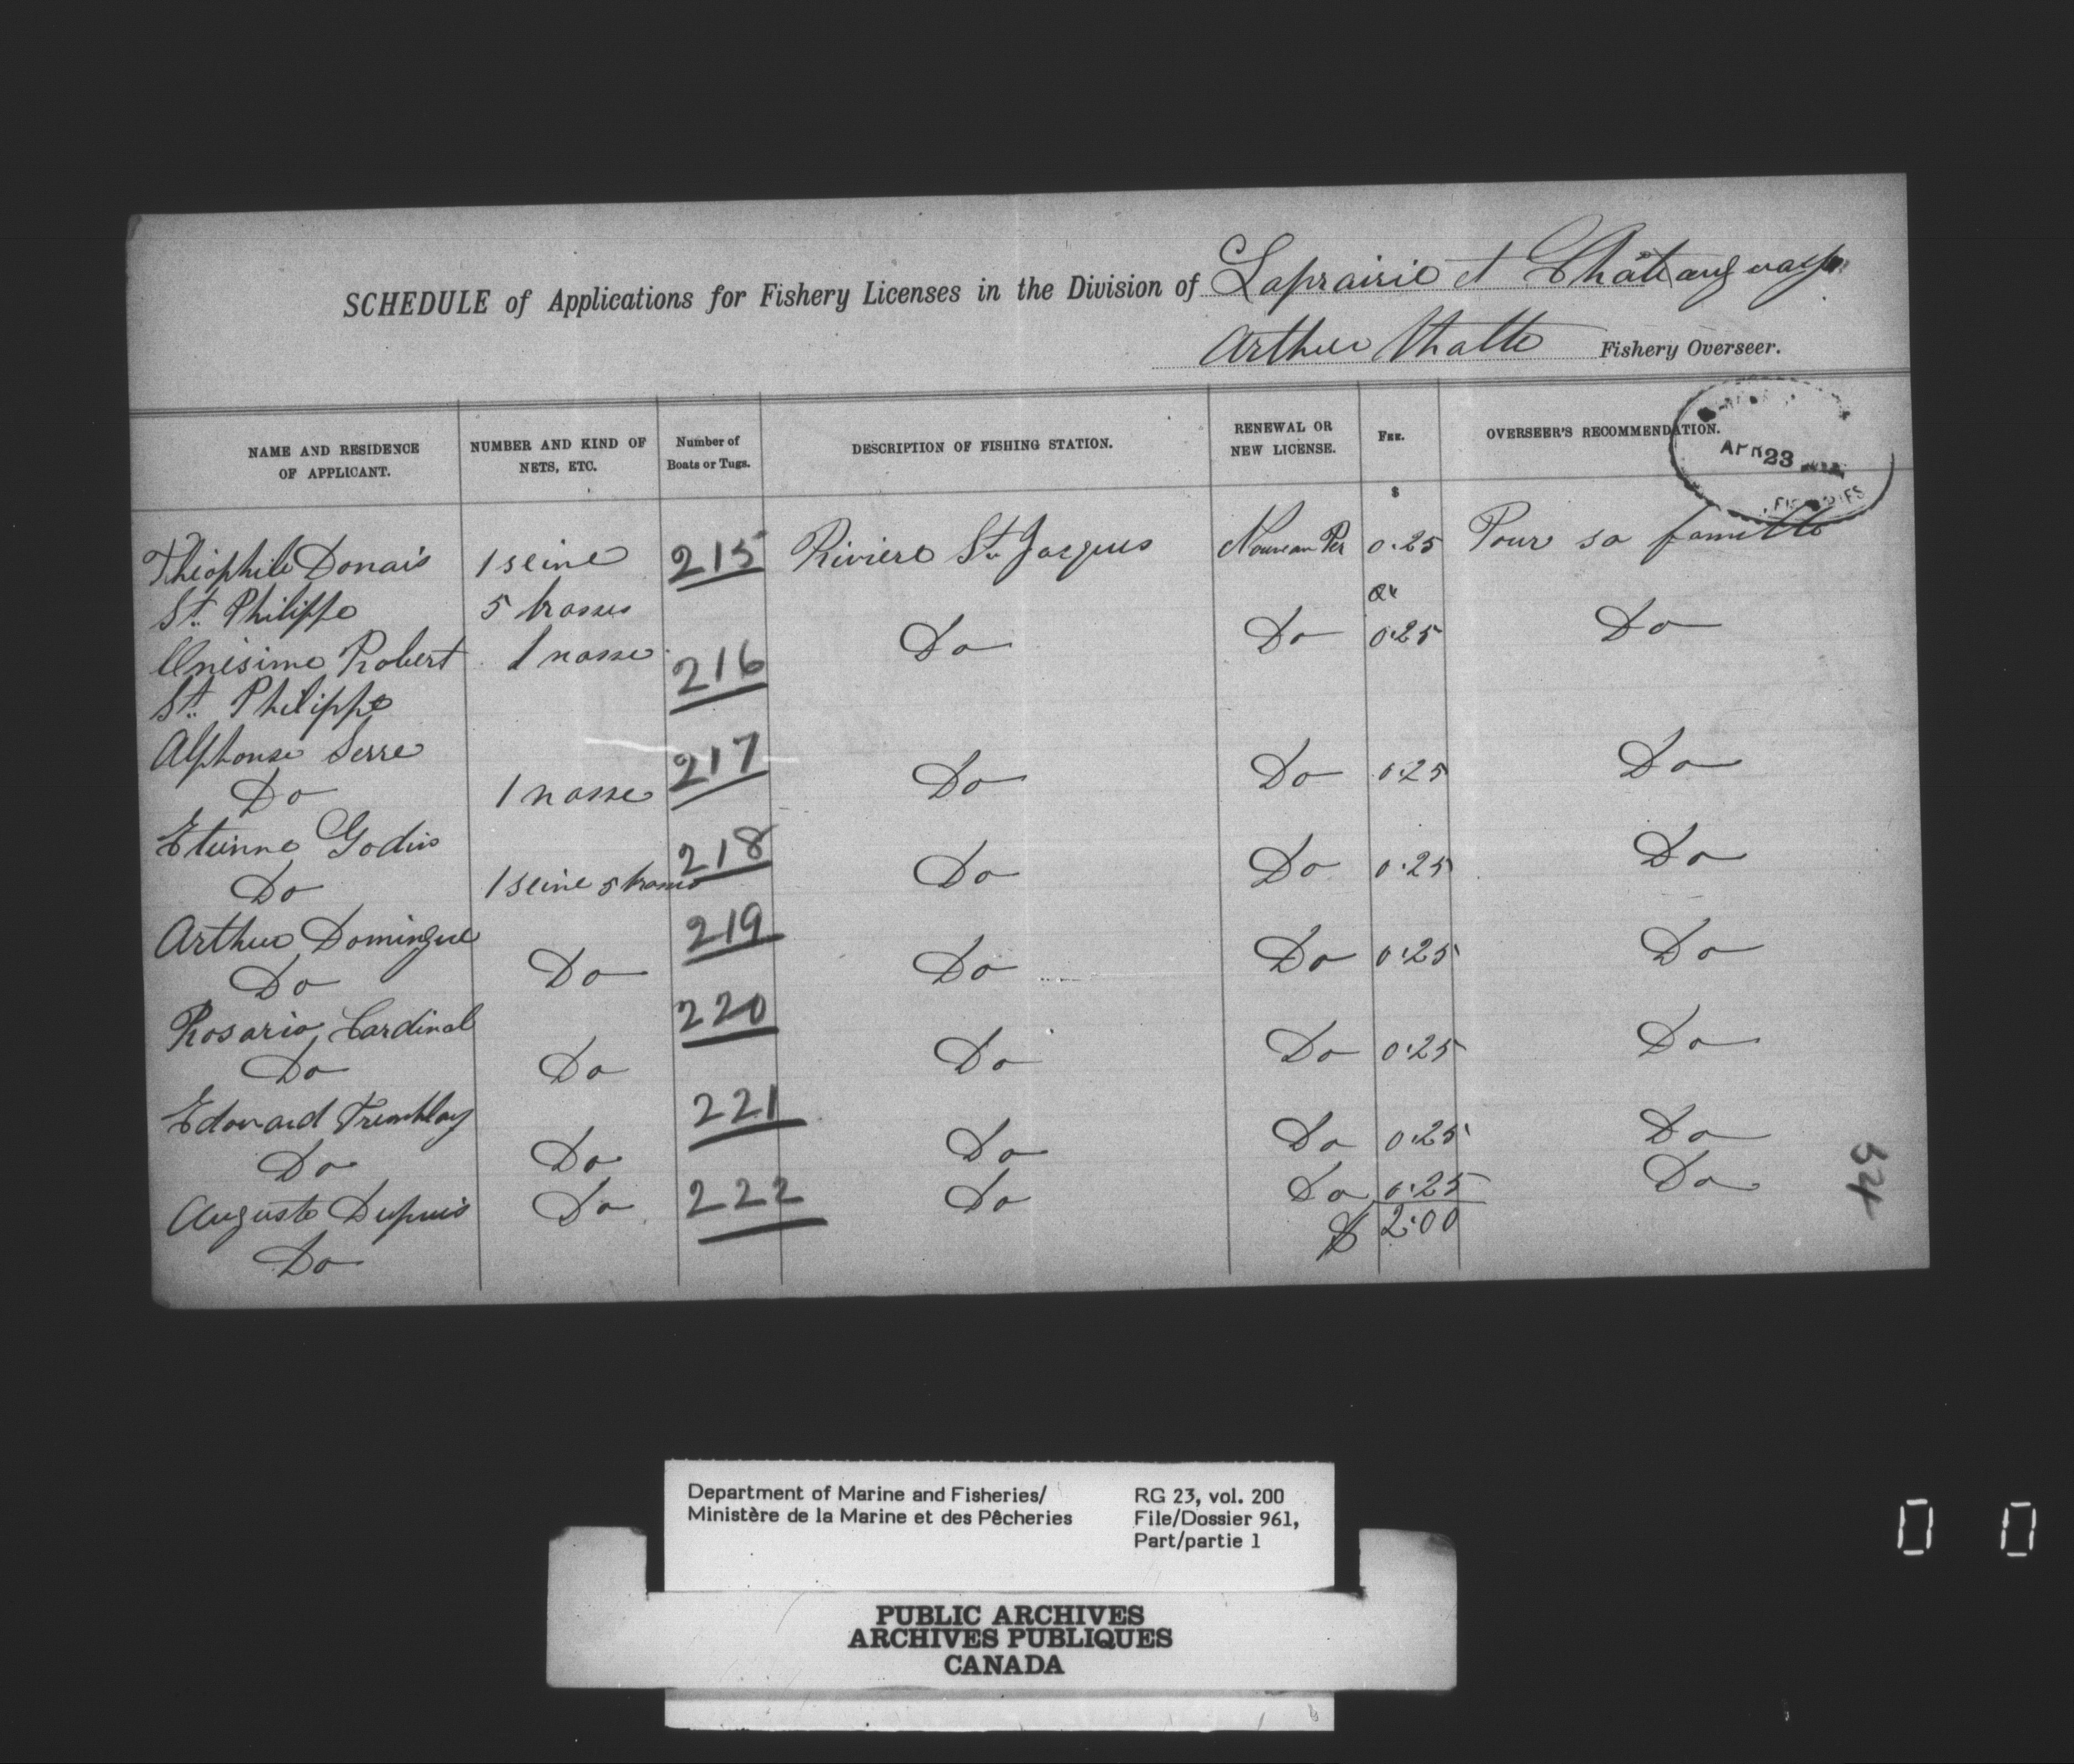 SCHEDULE of Applications for Fishery Licenses in the Division of Laprairie et Châteauguay
Arthur Fishery Overseer.
NAME AND RESIDENCE OF APPLICANT.
NUMBER AND KIND OF NETS, ETC.
Number of Boats or Tugs.
DESCRIPTION OF FISHING STATION.
RENEWAL OR NEW LICENSE.
FEE.
OVERSEER'S RECOMMENDATION.
APR 23
$
Théophile Donais 1 seine 215 Riviere St. Jacques Nouveau Per 0.25 Pour sa famille
St. Philippe 5 brasses
Onésime Robert 1 nasse 216 Do Do 0.25 Do
St. Philippe
Alphonse Serre 217
Do 1 nasse Do Do 0.25 Do
Etienne Godin 218
Do 1 seine 5 brasses Do Do 0.25 Do
Arthur Domingue 219
Do Do Do Do 0.25 Do
Rosario Cardinal 220
Do Do Do Do 0.25 Do
Edouard Tremblay 221
Do Do Do Do 0.25 Do
Auguste Dupuis Do 222 Do Do 0.25 Do
Do $ 2.00
Department of Marine and Fisheries/
Ministère de la Marine et des Pêcheries
RG 23, vol. 200
File/Dossier 961,
Part/partie 1
PUBLIC ARCHIVES
ARCHIVES PUBLIQUES
CANADA
0 0